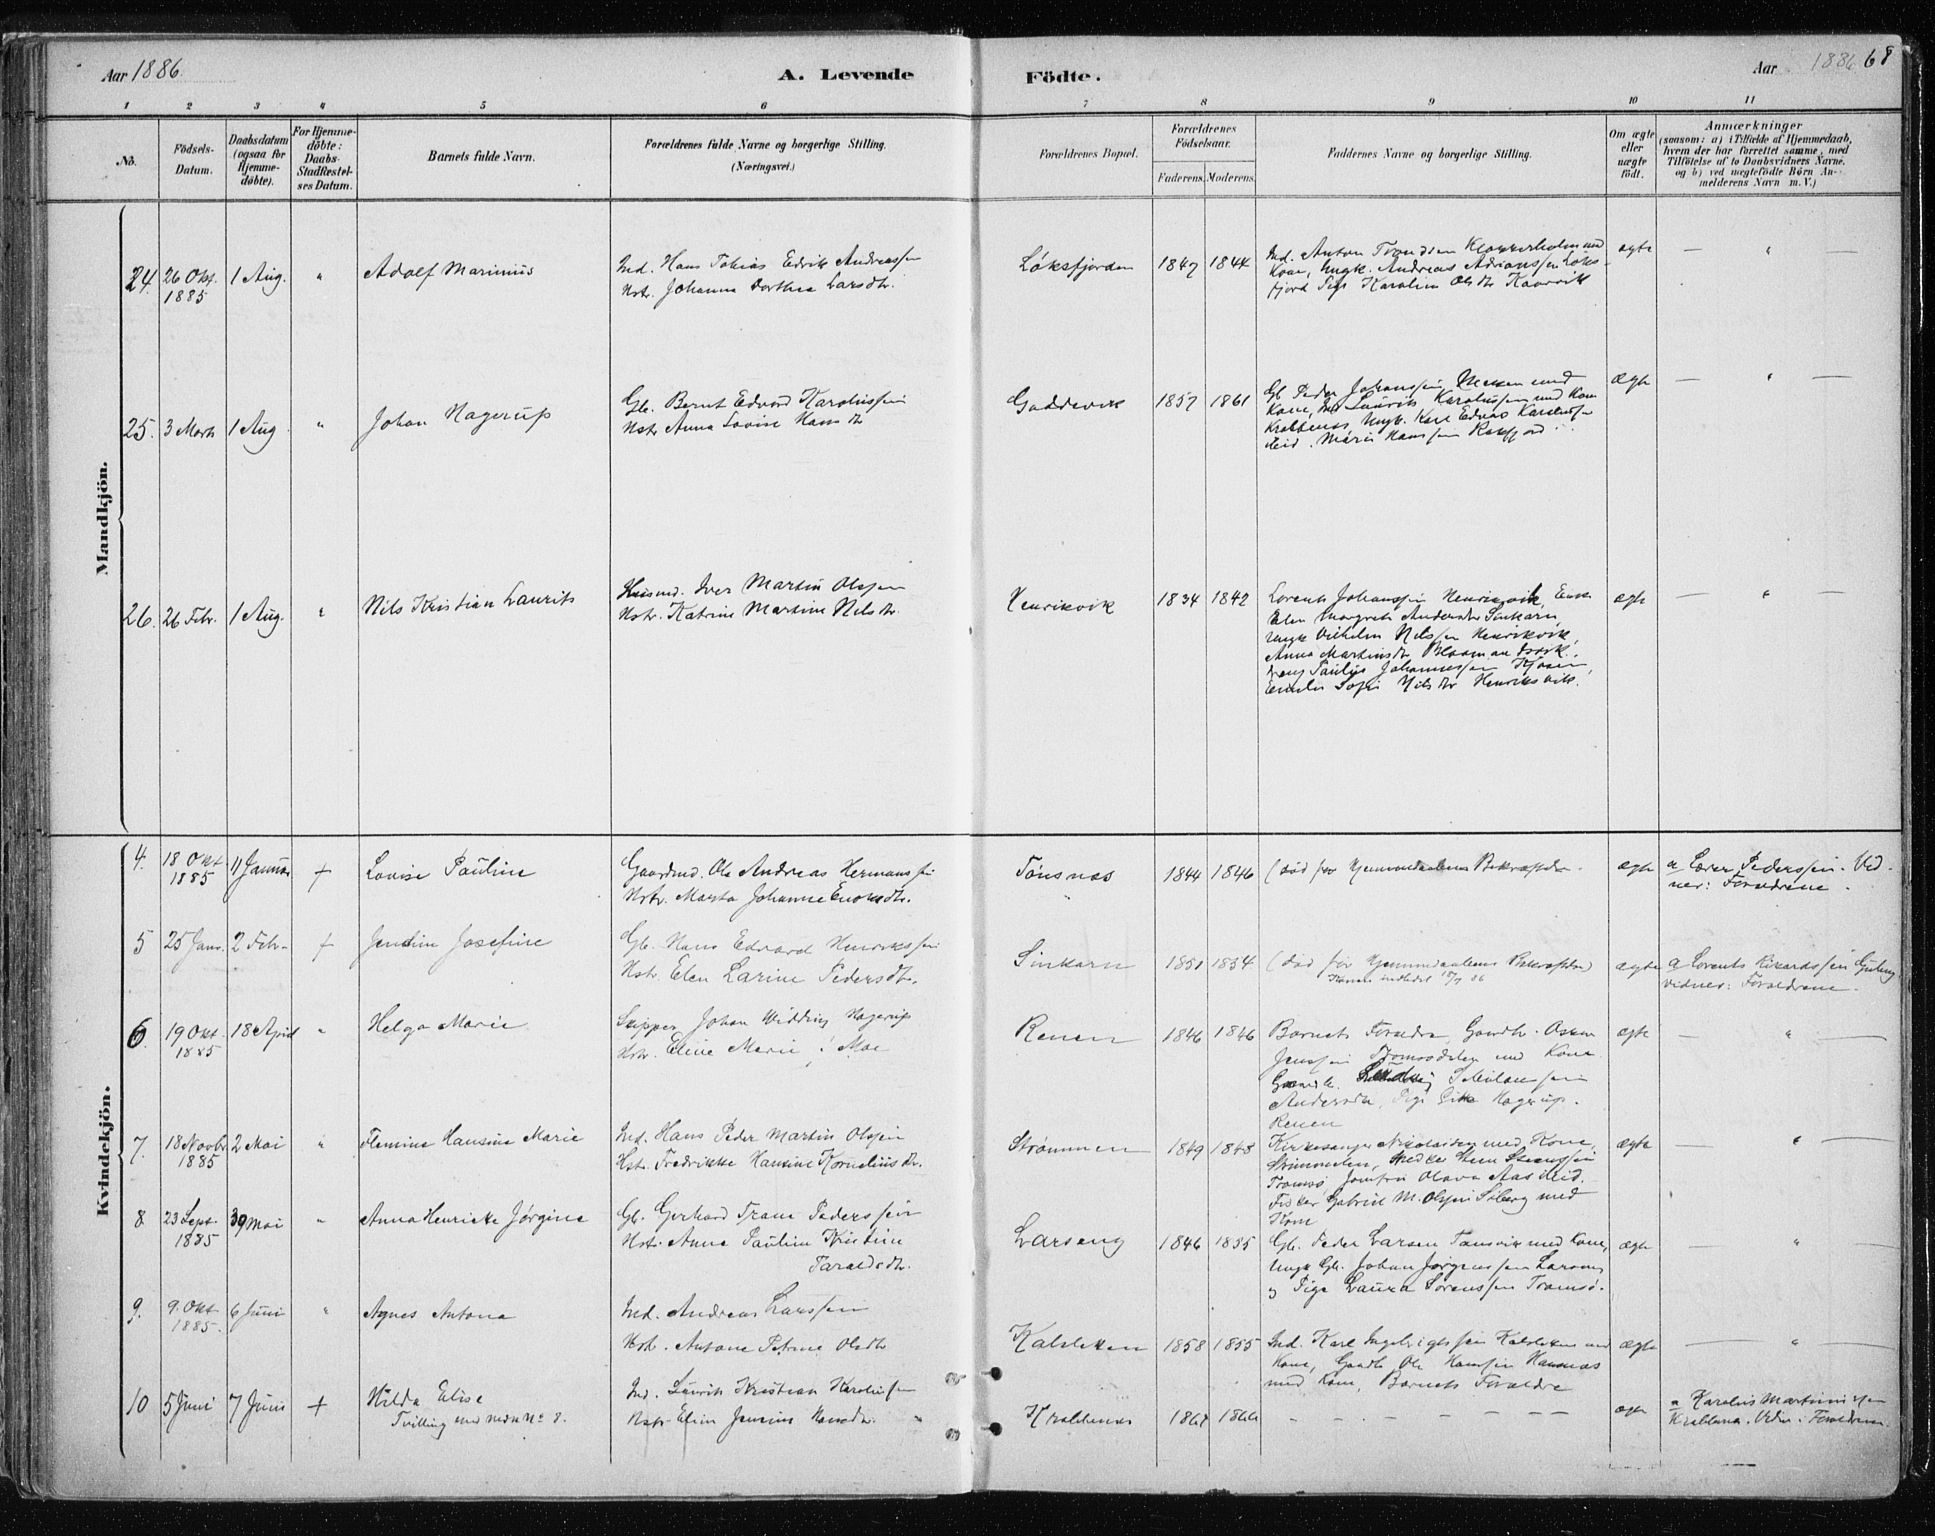 Aar 1886. A. Levende Födte. Aar 1886 68
1 2 3 4 5 6 7 8 9 10 11
No. Födsels-Datum. Daabsdatum (ogsaa for Hjemme-döbte). For Hjemme-döbte: Daabs-Stadfæstel-ses Datum. Barnets fulde Navn. Forældrenes fulde Navne og borgerlige Stilling. (Næringsvei.) Forældrenes Bopæl. Forældrenes Födselsaar. Faderens. Moderens. Faddernes Navne og borgerlige Stilling. Om ægte eller uægte födt. Anmærkninger (saasom: a) i Tilfælde af Hjemmedaab, hvem der har forrettet samme, med Tilföielse af to Daabsvidners Navne, og b) ved uægtefödte Börn An-melderens Navn m. V.)
Mandkjön.
24. 26 Okt. 1885 1 Aug. " Adolf Marinius
Ind. Hans Tobias Edrik Andreassen
Hstr. Johanna Dorthea Larsdtr.
Løksfjorden 1847 1844
Ind. Anton Trondsen Klokkerholm med
Kone, Ungk. Andreas Adrianssen Løks-
fjord Pige Karolin Olsdtr Kaarvik
ægte — " —
25. 3 Marts 1 Aug. " Johan Hagerup
Gb. Bernt Edvard Karolussen
Hstr Anna Lovise Hansdtr
Gaddevik 1857 1861
Gb Peder Johanssen med
Kone, Ind Laurits Karolussen med Kone
Krabbenes, Ungk. Karl Edvard Karolussen
Eid. Hanssen
ægte — " —
26. 26 Febr. 1 Aug. " Nils Kristian Laurits
Husmd. Iver Martin Olssen
Hstr. Katrine Martine Nilsdtr.
Henrikvik 1834 1842
Lorents Johanssen Henrikvik, Enke
Elen Margrete Andersdtr Sinkarn,
Ungk Vilhelm Nilssen Henrikvik,
Anna Martinsdtr
Dreng Paulus Johannessen Kjosen,
Emelie Sofie Nilsdtr Henriksvik.
ægte — " —
Kvindekjön.
4. 18 Okt 1885 11 Januar + Lovise Pauline
Gaardmd. Ole Andreas Hermanssen
Hstr. Marta Johanne Enoksdtr.
Tønsnes 1844 1846 (død før Hjemmedaabens Bekræftelse. ægte
a Lærer Pederssen. Vid-
ner: Forældrene.
5 25 Janr. 2 Febr. + Jentine Josefine
Gb. Hans Edvard Henrikssen
Hstr. Elen Larine Pedersdtr.
Sinkarn 1851 1854 (død før Hjemmedaabens Bekræftelse)
Konen indledet
ægte a Lorents Rikardssen
vidner: Forældrene.
6 19 Okt. 1885 18 April " Helga Marie
Skipper Johan Widding Hagerup
Hstr. Eline Marie f. Moe
Renen 1846 1846
Barnets Forældre, Gaardbr. Oskar
Jenssen Tromsdalen med Kone
Gaardb.
Andersdal, Pige Gitte Hagerup.
Renen
ægte — " —
7. 18 Novbr 1885 2 Mai " Flemine Hansine Marie
Ind. Hans Peder Martin Olssen
Hstr. Fredrikke Hansine Korneliusdtr.
Strømmen 1849 1848
Kirkesanger Nikolaisen med Kone,
Tromsø Jomfru Olava Aas Eid.
Fisker Gabriel M. Olssen med
Kone
ægte — " —
8 23 Sept. 1885 30 Mai " Anna Henrikke Jørgine
Gb. Gerhard Trane Pederssen
Hstr. Anne Pauline Kristine
Taraldsdtr.
Larseng 1846 1855
Gb. Peder Larsen Tansvik med Kone,
Ungk Gb. Johan Jørgenssen Larseng
og Pige Laura Sørenssen Tromsø.
ægte — " —
9. 9. Okt 1885. 6 Juni " Agnes Antona
Ind. Andreas Larssen
Hstr. Antone Petrine Olsdtr
Kalsletten 1858 1855
Ind. Karl Ingebrigtssen Kalsletten med
Kone, Gaardb Ole Hanssen
med Kone, Barnets Forældre
ægte — " —
10 5 Juni 7 Juni + Hilda Elise
Tvilling med No 8.
Ind. Laurits Kristian Karolussen
Hstr. Elen Jensine Hansdtr.
Krabbenes ægte
a Karolus Martinussen
Krabbenes. Vidn.: Forældrene.